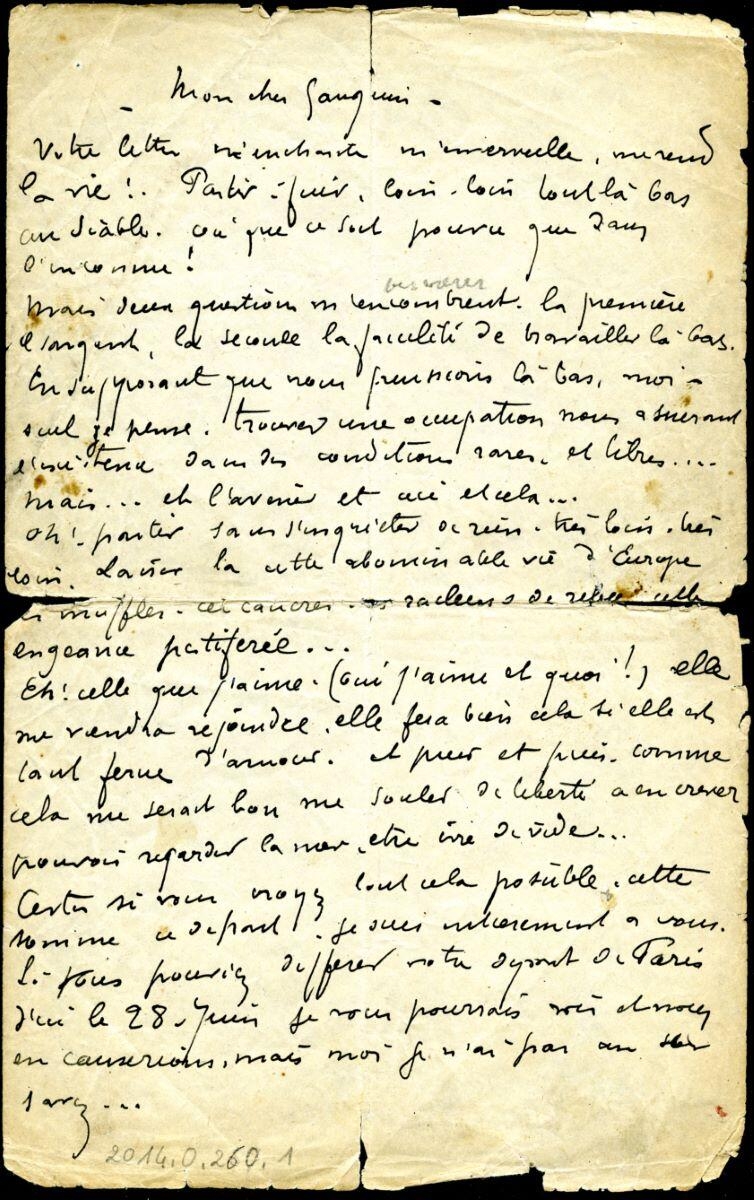 - Mon cher Gauguin -
Votre lettre m'enchante m'émerveille, me rend
la vie !. Partir - fuir, loin - loin tout là bas
au Diable. où que ce soit pourvu que dans
l'inconnu !
Mais deux questions m'encombrent. la première
l'argent, la seconde la faculté de travailler là bas.
En supposant que nous puissions là bas, moi -
seul je pense. trouver une occupation nous assurant
l'existence dans des conditions rares. et libres....
mais... et l'avenir et ceci et cela...
Oh ! partir sans s'inquiéter de rien. très loin. très
loin. Laisser là cette abominable vie d'Europe
ces muffles. ces cancres. ces de cette
engeance pestiférée...
Eh ! celle que j'aime. (oui j'aime et quoi !) elle
me viendra rejoindre. elle fera bien cela si elle est
tant ferme d'amour. et puis et puis. comme
cela me serait bon me souler de liberté a en crever
pouvoir regarder la mer. etre ivre de vide...
Certes si vous croyez tout cela possible. cette
somme ce départ. je suis entièrement a vous.
Si vous pouviez differer votre depart de Paris
d'ici le 28. Juin je vous pourrais voir et nous
en causerions. mais moi je n'ai pas un sou
savez...
2014.0.260.1